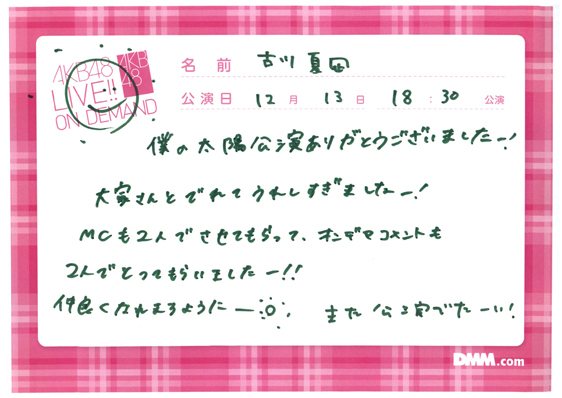 AKB48
LIVE!!
ON DEMAND
AKB
48
名前 古川夏凪
公演日 12月 13日 18:30 公演
僕の太陽公演ありがとうございましたー!
大家さんとでれてうれしすぎましたー!
MCも2人でさせてもらって、オンデマコメントも
2人でとってもらいましたー!!
仲良くなれますようにー
また公演でたーい!
DMM.com